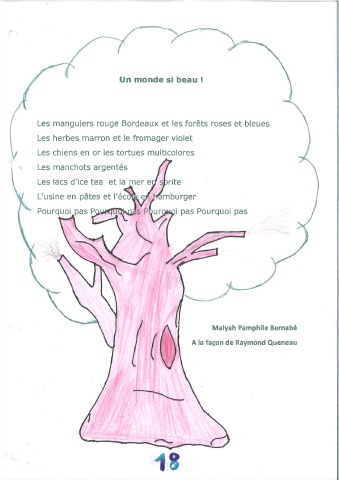 Un monde si beau !
Les manguiers rouge Bordeaux et les forêts roses et bleues
Les herbes marron et le fromager violet
Les chiens en or les tortues multicolores
Les manchots argentés
Les lacs d'ice tea et la mer en sprite
L'usine en pâtes et l'école en hamburger
Pourquoi pas Pourquoi pas Pourquoi pas Pourquoi pas
Malyah Pamphile Bernabé
A la façon de Raymond Queneau
18